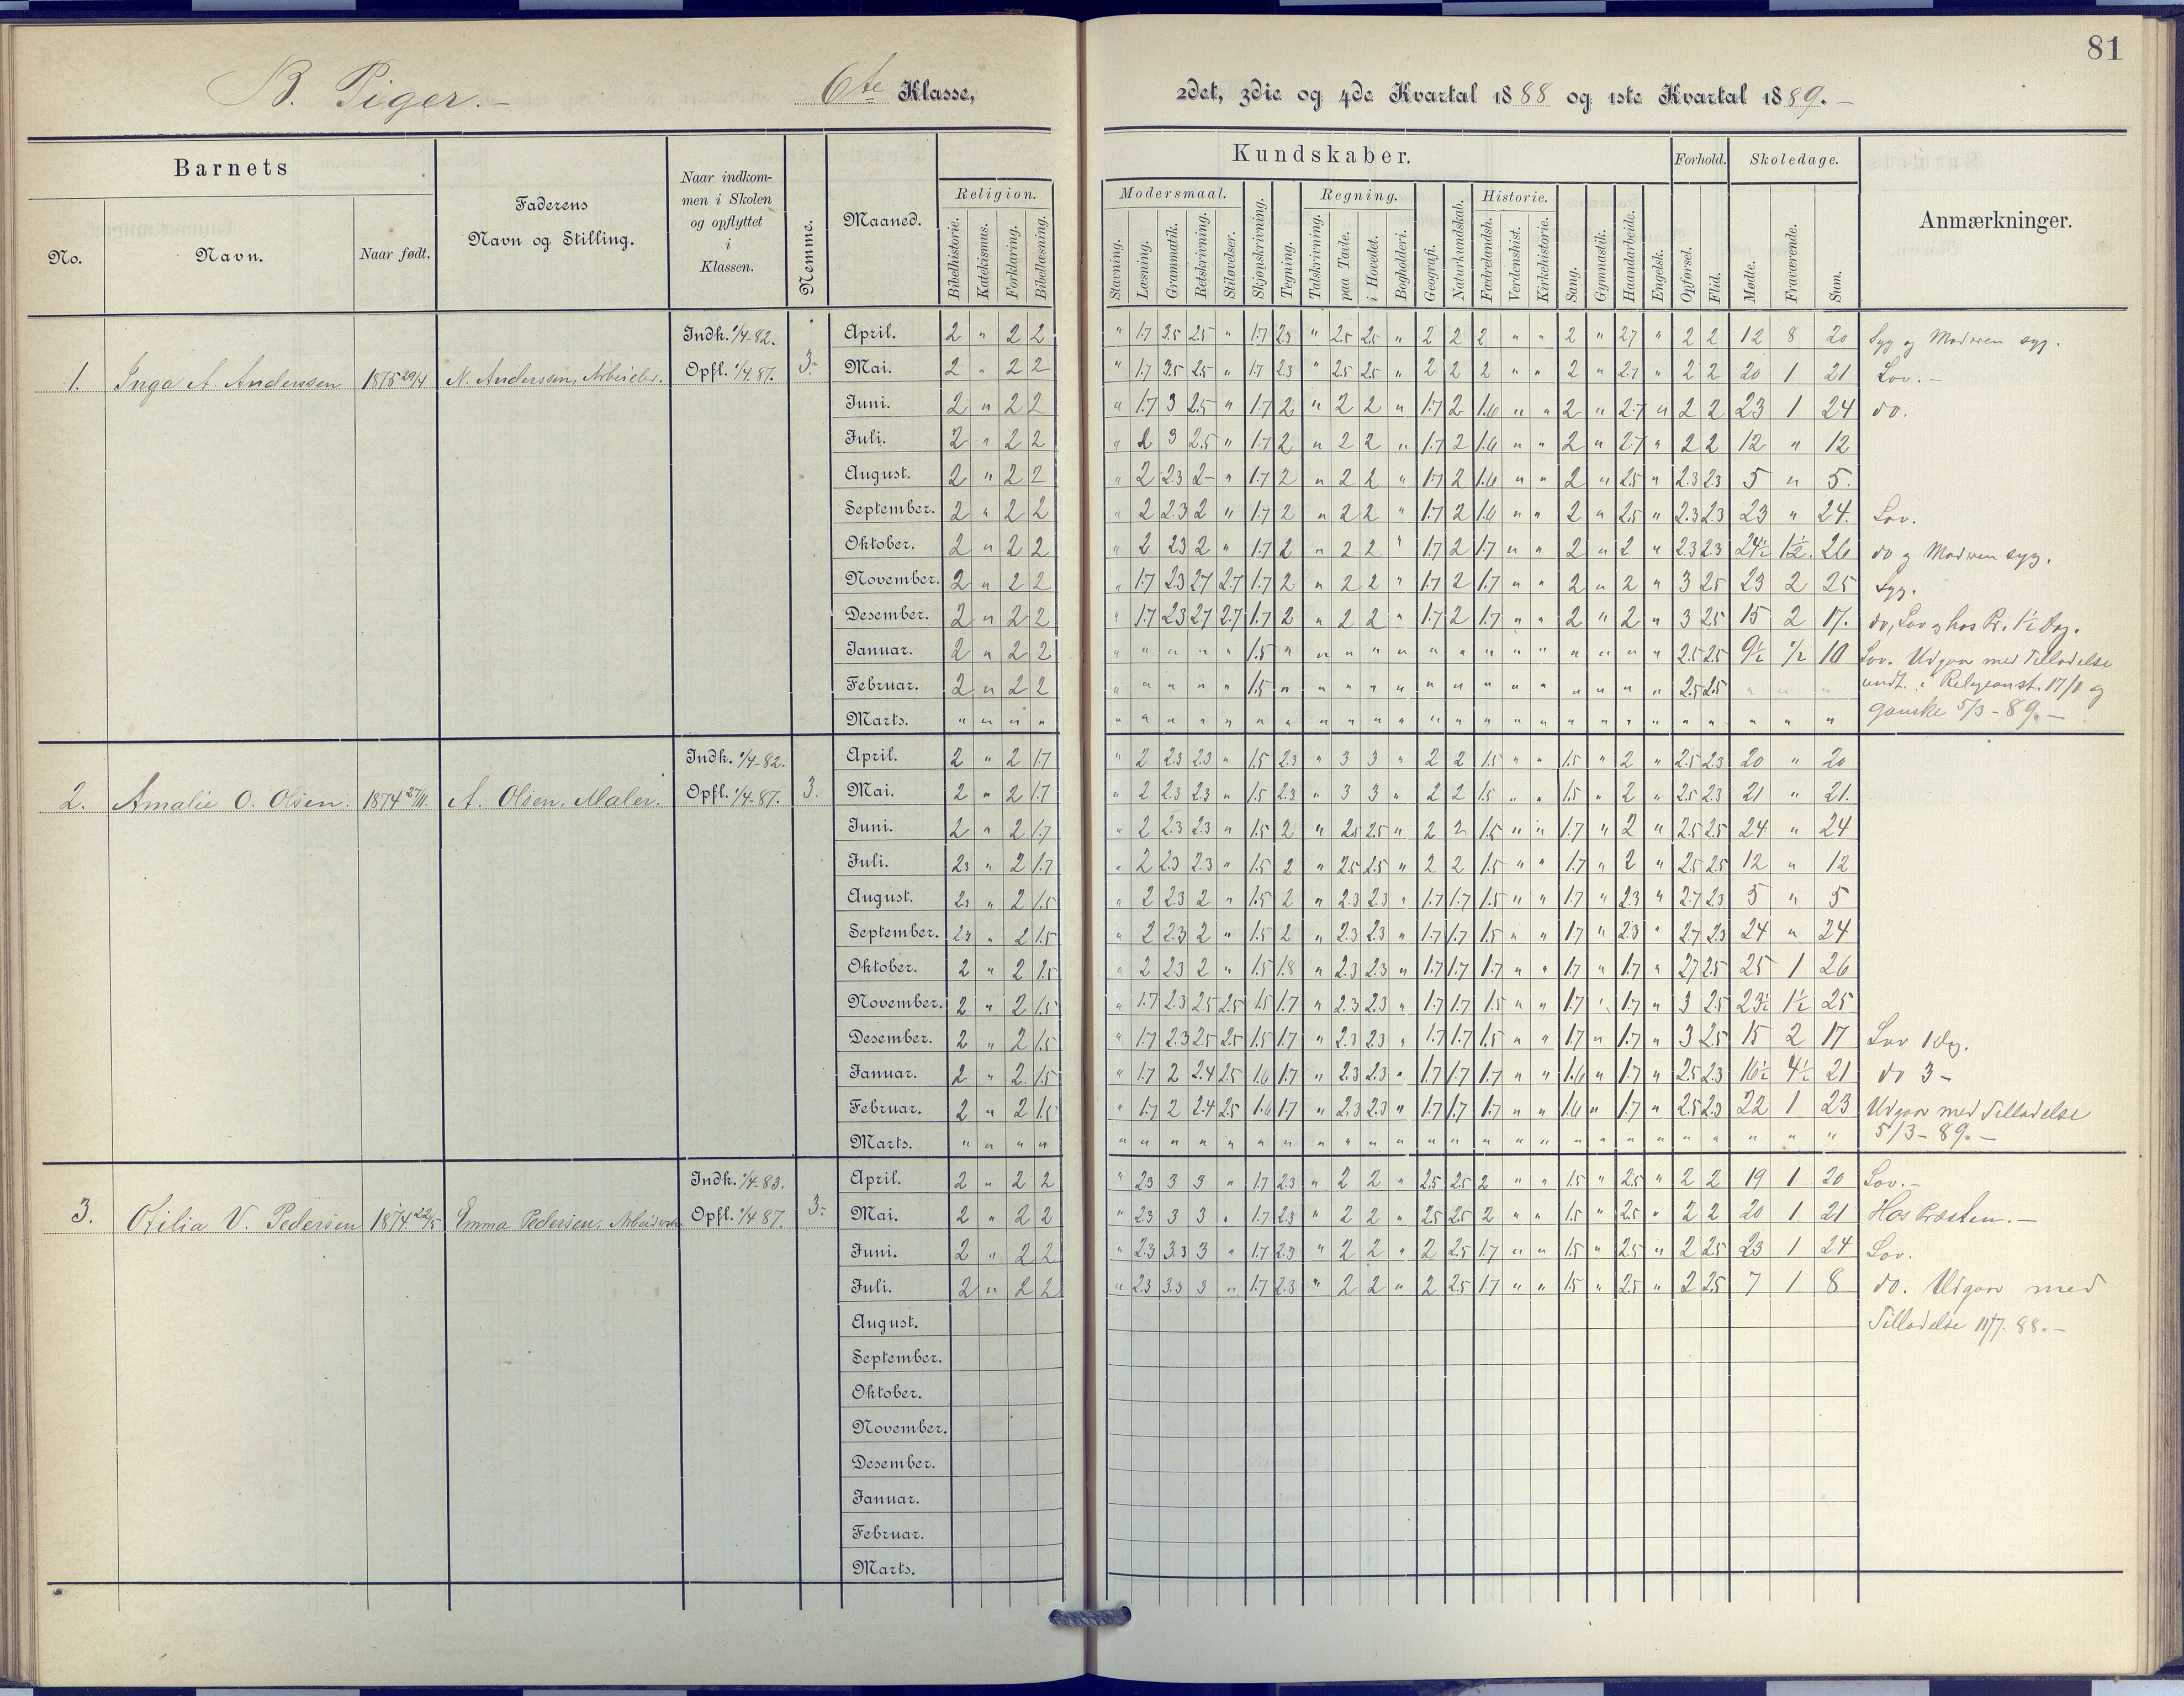 81
B. Piger.–
6te Klasse,
2det, 3die og 4de Kvartal 1888 og 1ste Kvartal 1889.–
Barnets
No.
Navn.
Naar født.
Faderens
Navn og Stilling.
Naar indkom-
men i Skolen
og opflyttet
i
Klassen.
Nemme.
Maaned.
Religion.
Bibelhistorie.
Katekismus.
Forklaring.
Bibellæsning.
Kundskaber.
Modersmaal.
Stavning.
Læsning.
Grammatik.
Retskrivning.
Stiløvelser.
Skjønskrivning.
Tegning.
Regning.
Talskrivning.
paa Tavle.
i Hovedet.
Bogholderi.
Geografi.
Naturkundskab.
Historie.
Fædrelandsh.
Verdenshist.
Kirkehistorie.
Sang.
Gymnastik.
Haandarbeide.
Engelsk.
Forhold.
Opførsel.
Flid.
Skoledage.
Mødte.
Fraværende.
Sum.
Anmærkninger.
1. Inga A. Andersen 1875 29/4 N. Andersen, Arbeider. Indk. 1/4-82. Opfl. 1/4 87. 3.
April. 2 " 2 2 " 1.7 3.5 2.5 " 1.7 2.3 " 2.5 2.5 " 2 2 2 " " 2 " 2.7 " 2 2 12 8 20 Syg og Moderen syg.
Mai. 2 " 2 2 " 1.7 3.5 2.5 " 1.7 2.3 " 2.5 2.5 " 2 2 2 " " 2 " 2.7 " 2 2 20 1 21 Lov.–
Juni. 2 " 2 2 " 1.7 3 2.5 " 1.7 2 " 2 2 " 1.7 2 1.6 " " 2 " 2.7 " 2 2 23 1 24 do.
Juli. 2 " 2 2 " 2 3 2.5 " 1.7 2 " 2 2 " 1.7 2 1.6 " " 2 " 2.7 " 2 2 12 " 12
August. 2 " 2 2 " 2 2.3 2 " 1.7 2 " 2 2 " 1.7 2 1.6 " " 2 " 2.5 " 2.3 2.3 5 " 5.
September. 2 " 2 2 " 2 2.3 2 " 1.7 2 " 2 2 " 1.7 2 1.6 " " 2 " 2.5 " 2.3 2.3 23 " 24. Lov.
Oktober. 2 " 2 2 " 2 2.3 2 " 1.7 2 " 2 2 " 1.7 2 1.7 " " 2 " 2 " 2.3 2.3 24½ 1½. 26 do og Moderen syg.
November. 2 " 2 2 " 1.7 2.3 2.7 2.7 1.7 2 " 2 2 " 1.7 2 1.7 " " 2 " 2 " 3 2.5 23 2 25 Syg.
Desember. 2 " 2 2 " 1.7 2.3 2.7 2.7 1.7 2 " 2 2 " 1.7 2 1.7 " " 2 " 2 " 3 2.5 15 2 17. do, Lov og hos Pr. 1½ dag.
Januar. 2 " 2 2 " " " " " 1.5 " " " " " " " " " " " " " " 2.5 2.5 9½ ½ 10 Lov. Udgaar med Tilladelse
Februar. 2 " 2 2 " " " " " 1.5 " " " " " " " " " " " " " " 2.5 2.5 " " " undt. i Religionst. 17/1 og
Marts. " " " " " " " " " " " " " " " " " " " " " " " " " " " " " ganske 5/3-89.–
2. Amalie O. Olsen. 1874 27/11. A. Olsen, Maler. Indk. 1/4-82. Opfl. 1/4-87. 3.
April. 2 " 2 1.7 " 2 2.3 2.3 " 1.5 2.3 " 3 3 " 2 2 1.5 " " 1.5 " 2 " 2.5 2.3 20 " 20
Mai. 2 " 2 1.7 " 2 2.3 2.3 " 1.5 2.3 " 3 3 " 2 2 1.5 " " 1.5 " 2 " 2.5 2.3 21 " 21.
Juni. 2 " 2 1.7 " 2 2.3 2.3 " 1.5 2 " 2.5 2.5 " 2 2 1.5 " " 1.7 " 2 " 2.5 2.5 24 " 24
Juli. 2.3 " 2 1.7 " 2 2.3 2.3 " 1.5 2 " 2.5 2.5 " 2 2 1.5 " " 1.7 " 2 " 2.5 2.5 12 " 12
August. 2.3 " 2 1.5 " 2 2.3 2 " 1.5 2 " 2.3 2.3 " 1.7 1.7 1.5 " " 1.7 " 2.3 " 2.7 2.3 5 " 5
September. 2.3 " 2 1.5 " 2 2.3 2 " 1.5 2 " 2.3 2.3 " 1.7 1.7 1.5 " " 1.7 " 2.3 " 2.7 2.3 24 " 24
Oktober. 2 " 2 1.5 " 2 2.3 2 " 1.5 1.8 " 2.3 2.3 " 1.7 1.7 1.7 " " 1.7 " 1.7 " 2.7 2.5 25 1 26
November. 2 " 2 1.5 " 1.7 2.3 2.5 2.5 1.5 1.7 " 2.3 2.3 " 1.7 1.7 1.5 " " 1.7 " 1.7 " 3 2.5 23½ 1½ 25
Desember. 2 " 2 1.5 " 1.7 2.3 2.5 2.5 1.5 1.7 " 2.3 2.3 " 1.7 1.7 1.5 " " 1.7 " 1.7 " 3 2.5 15 2 17 Lov 1 dag.
Januar. 2 " 2. 1.5 " 1.7 2 2.4 2.5 1.6 1.7 " 2.3 2.3 " 1.7 1.7 1.7 " " 1.6 " 1.7 " 2.5 2.3 16½ 4½ 21 do 3 –
Februar. 2 " 2 1.5 " 1.7 2 2.4 2.5 1.6 1.7 " 2.3 2.3 " 1.7 1.7 1.7 " " 1.6 " 1.7 " 2.5 2.3 22 1 23 Udgaar med Tilladelse
Marts. " " " " " " " " " " " " " " " " " " " " " " " " " " " " " 5/3-89.–
3. Otilia V. Pedersen 1874 22/5 Emma Pedersen, Indk. 1/4-83. Opfl. 1/4 87. 3.
April. 2 " 2 2 " 2.3 3 3 " 1.7 2.3 " 2 2 " 2.5 2.5 2 " " 1.5 " 2.5 " 2 2 19 1 20 Lov.–
Mai. 2 " 2 2 " 2.3 3 3 " 1.7 2.3 " 2 2 " 2.5 2.5 2 " " 1.5 " 2.5 " 2 2 20 1 21 Hos Præsten.–
Juni. 2 " 2 2 " 2.3 3.3 3 " 1.7 2.3 " 2 2 " 2 2.5 1.7 " " 1.5 " 2.5 " 2 2.5 23 1 24 Lov.
Juli. 2 " 2 2 " 2.3 3.3 3 " 1.7 2.3 " 2 2 " 2 2.5 1.7 " " 1.5 " 2.5 " 2 2.5 7 1 8 do. Udgaar med
August. Tilladelse 11/7-88.–
September.
Oktober.
November.
Desember.
Januar.
Februar.
Marts.